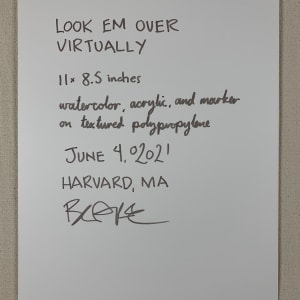 LOOK EM OVER
VIRTUALLY
11 x 8.5 inches
watercolor, acrylic, and marker
on textured polypropylene
JUNE 4, 02021
HARVARD, MA